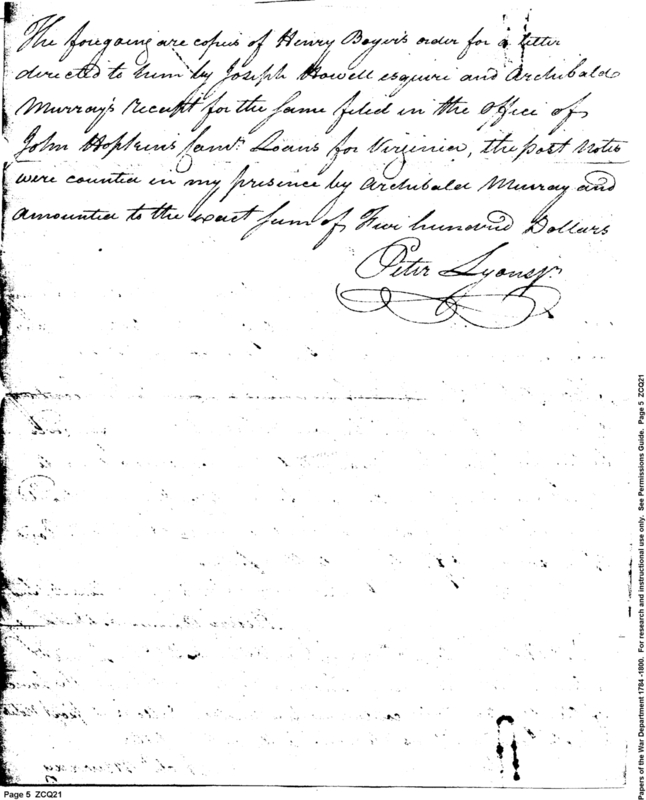 The foregoing are copies of Henry Boyer's order for a letter
directed to him by Joseph Howell esquire and Archibald
Murray's receipt for the same filed in the office of
John Hopkins Comr. Loans for Virginia, the post Notes
were counted in my presence by Archibald Murray and
amounted to the exact sum of Five hundred Dollars
Peter Lyons jr
Page 5 ZCQ21
Papers of the War Department 1784 -1800. For research and instructional use only. See Permissions Guide. Page 5 ZCQ21